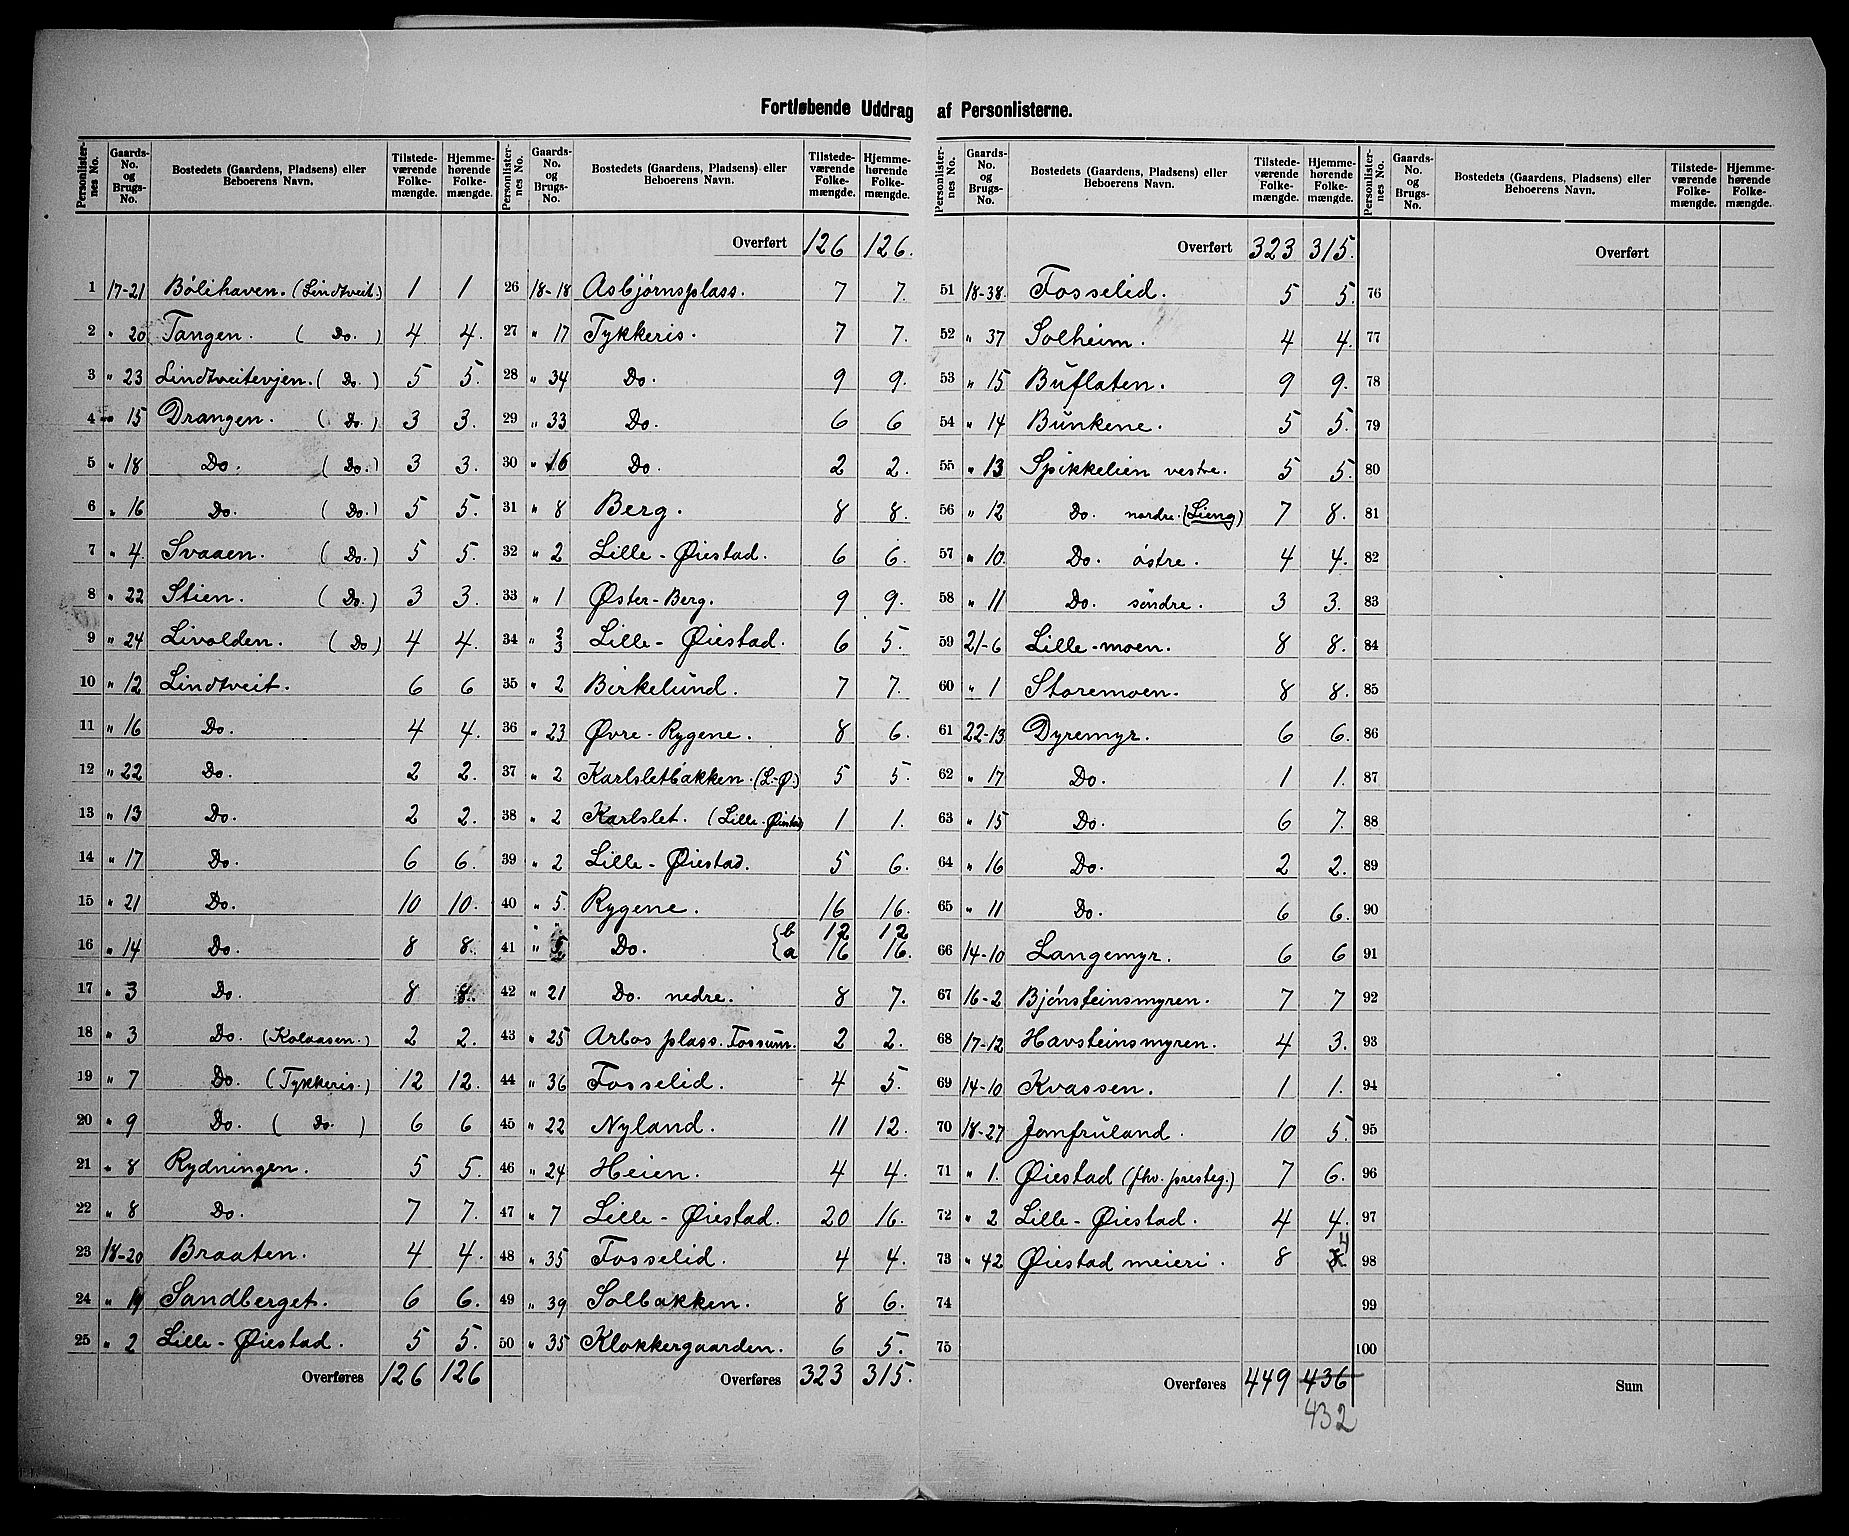 Fortløbende Uddrag af Personlisterne.
Personlister-nes No. | Gaards-No. og Brugs-No. | Bostedets (Gaardens, Pladsens) eller Beboerens Navn. | Tilstede-værende Folke-mængde. | Hjemme-hørende Folke-mængde.
1 17-21 Bölihaven. (Lindtveit.) 1 1
2 " 20 Tangen. ( Do. ) 4 4.
3 " 23 Lindtveitevjen. ( Do. ) 5 5.
4 " 15 Drangen. ( Do. ) 3 3.
5 " 18 Do. ( Do. ) 3 3.
6 " 16 Do. ( Do. ) 5 5.
7 " 4. Svaaen. ( Do. ) 5 5.
8 " 22 Stien. ( Do. ) 3 3.
9 " 24 Livolden. ( Do ) 4 4.
10 " 12 Lindtveit. 6 6
11 " 16 Do. 4 4.
12 " 22 Do. 2 2.
13 " 13 Do. 2 2.
14 " 17 Do. 6 6.
15 " 21 Do. 10 10.
16 " 14 Do. 8 8.
17 " 3 Do. 8 8.
18 " 3 Do. (Kolaasen.) 2 2.
19 " 7 Do. (Tykkeris.) 12 12.
20 " 9 Do. ( Do. ) 6 6
21 " 8 Rydningen. 5 5.
22 " 8 Do. 7 7.
23 18-20 Braaten. 4 4.
24 " 19 Sandberget. 6 6.
25 " 2 Lille-Øiestad. 5 5.
Overføres 126 126
Personlister-nes No. | Gaards-No. og Brugs-No. | Bostedets (Gaardens, Pladsens) eller Beboerens Navn. | Tilstede-værende Folke-mængde. | Hjemme-hørende Folke-mængde.
Overført 126 126.
26 18-18 Asbjørnsplass. 7 7.
27 " 17 Tykkeris. 7 7.
28 " 34 Do. 9 9.
29 " 33 Do. 6 6
30 " 16 Do. 2 2.
31 " 8 Berg. 8 8.
32 " 2 Lille-Øiestad. 6 6.
33 " 1 Øster-Berg. 9 9.
34 " 2/3 Lille-Øiestad. 6 5.
35 " 2 Birkelund. 7 7.
36 " 23 Øvre-Rygene. 8 6.
37 " 2 Karlsletbakken. (L.-Ø.) 5 5.
38 " 2 Karlslet. (Lille-Øiestad) 1 1.
39 " 2 Lille-Øiestad. 5 6.
40 " 5. Rygene. 16 16.
41 " 5 Do. {b 12 12
{a 16 16.
42 " 21 Do. nedre. 8 7.
43 " 25 Arbos plass. Fossum. 2 2.
44 " 36 Fosselid. 4 5.
45 " 22 Nyland. 11 12.
46 " 24 Heien. 4 4.
47 " 7 Lille-Øiestad. 20 16.
48 " 35 Fosselid. 4 4.
49 " 39 Solbakken. 8 6.
50 " 35 Klokkergaarden. 6 5.
Overføres 323 315.
Personlister-nes No. | Gaards-No. og Brugs-No. | Bostedets (Gaardens, Pladsens) eller Beboerens Navn. | Tilstede-værende Folke-mængde. | Hjemme-hørende Folke-mængde.
Overført 323 315.
51 18-38. Fosselid. 5 5.
52 " 37 Solheim. 4 4.
53 " 15 Buflaten. 9 9.
54 " 14 Bunkene. 5 5.
55 " 13 Spikkelien vestre. 5 5.
56 " 12 Do. nordre. (Lieng) 7 8.
57 " 10. Do. östre. 4 4.
58 " 11 Do. söndre. 3 3.
59 21-6 Lille-moen. 8 8.
60 " 1 Storemoen. 8 8.
61 22-13 Dyremyr. 6 6.
62 " 17 Do. 1 1.
63 " 15 Do. 6 7.
64 " 16 Do. 2 2.
65 " 11 Do. 6 6.
66 14-10 Langemyr. 6 6
67 16-2 Bjønsteinsmyren. 7 7
68 17-12 Havsteinsmyren. 4 3.
69 14-10 Kvassen. 1 1.
70 18-27 Jomfruland. 10 5.
71 " 1. Øiestad (fhv. presteg.) 7 6.
72 " 2 Lille-Øiestad. 4 4.
73 " 42 Øiestad meieri. 8 8. 4
74
75
Overføres 449 436
432
Personlister-nes No. | Gaards-No. og Brugs-No. | Bostedets (Gaardens, Pladsens) eller Beboerens Navn. | Tilstede-værende Folke-mængde. | Hjemme-hørende Folke-mængde.
Overført
76
77
78
79
80
81
82
83
84
85
86
87
88
89
90
91
92
93
94
95
96
97
98
99
100
Sum